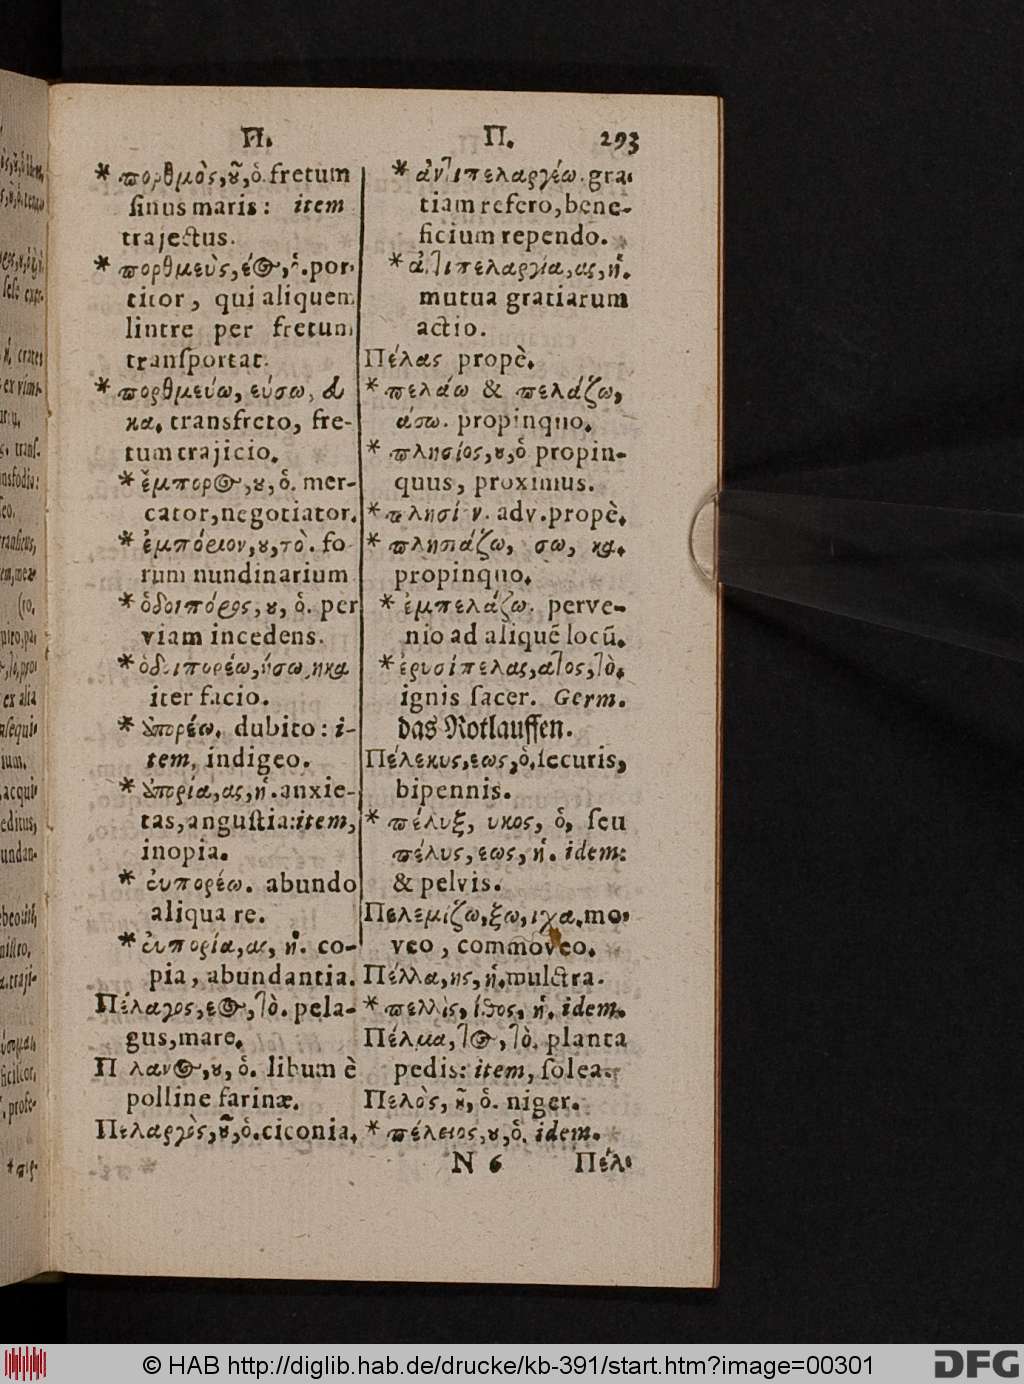 Π.
* πορθμὸς, ȣ͂, ὁ. fretum
ſinus maris: item
trajectus.
* πορθμεὺς, έος, ὁ. por-
titor, qui aliquem
lintre per fretum
tranſportat.
* πορθμεύω, εύσω, &
κα. transfreto, fre-
tum trajicio.
* ἔμπορος, ȣ, ὁ. mer-
cator, negotiator.
* ἐμπόριον, ȣ, τὸ. fo
rum nundinarium
* ὁδοιπόρος, ȣ, ὁ. per
viam incedens.
* ὁδοιπορέω, ήσω, ηκα
iter facio.
* ἀπορέω. dubito: i-
tem, indigeo.
* ἀπορία, ας, ἡ. anxie-
tas, anguſtia: item,
inopia.
* ἐυπορέω. abundo
aliqua re.
* ἐυπορία, ας, ἡ. co-
pia, abundantia.
Πέλαγος, εος, τὸ. pela-
gus, mare.
Π λανος, ȣ, ὁ. libum è
polline farinæ.
Πελαργὸς, ȣ͂, ὁ. ciconia.
Π. 293
* ἀντιπελαργέω. gra-
tiam refero, bene-
ficium rependo.
* ἀντιπελαργία, ας, ἡ.
mutua gratiarum
actio.
Πέλας propè.
* πελάω & πελάζω,
άσω. propinquo.
* πλησίος, ȣ, ὁ propin-
quus, proximus.
* πλησίον. adv. propè.
* πλησιάζω, σω, κα.
propinquo.
* ἐμπελάζω. perve-
nio ad aliquẽ locũ.
* ἐρυσίπελας, ατος, τὸ.
ignis ſacer. Germ.
das Rotlauffen.
Πέλεκυς, εως, ὁ, ſecuris,
bipennis.
* πέλυξ, υκος, ὁ, ſeu
πέλυς, εως, ἡ. idem:
& pelvis.
Πελεμίζω, ξω, ιχα. mo-
veo, commoveo.
Πέλλα, ης, ἡ. mulctra.
* πελλὶς, ίδος, ἡ. idem.
Πέλμα, τος, τὸ. planta
pedis: item, ſolea.
Πελὸς, ȣ͂, ὁ. niger.
* πέλειος, ȣ, ὁ. idem.
N 6 Πέλ-
© HAB http://diglib.hab.de/drucke/kb-391/start.htm?image=00301
DFG